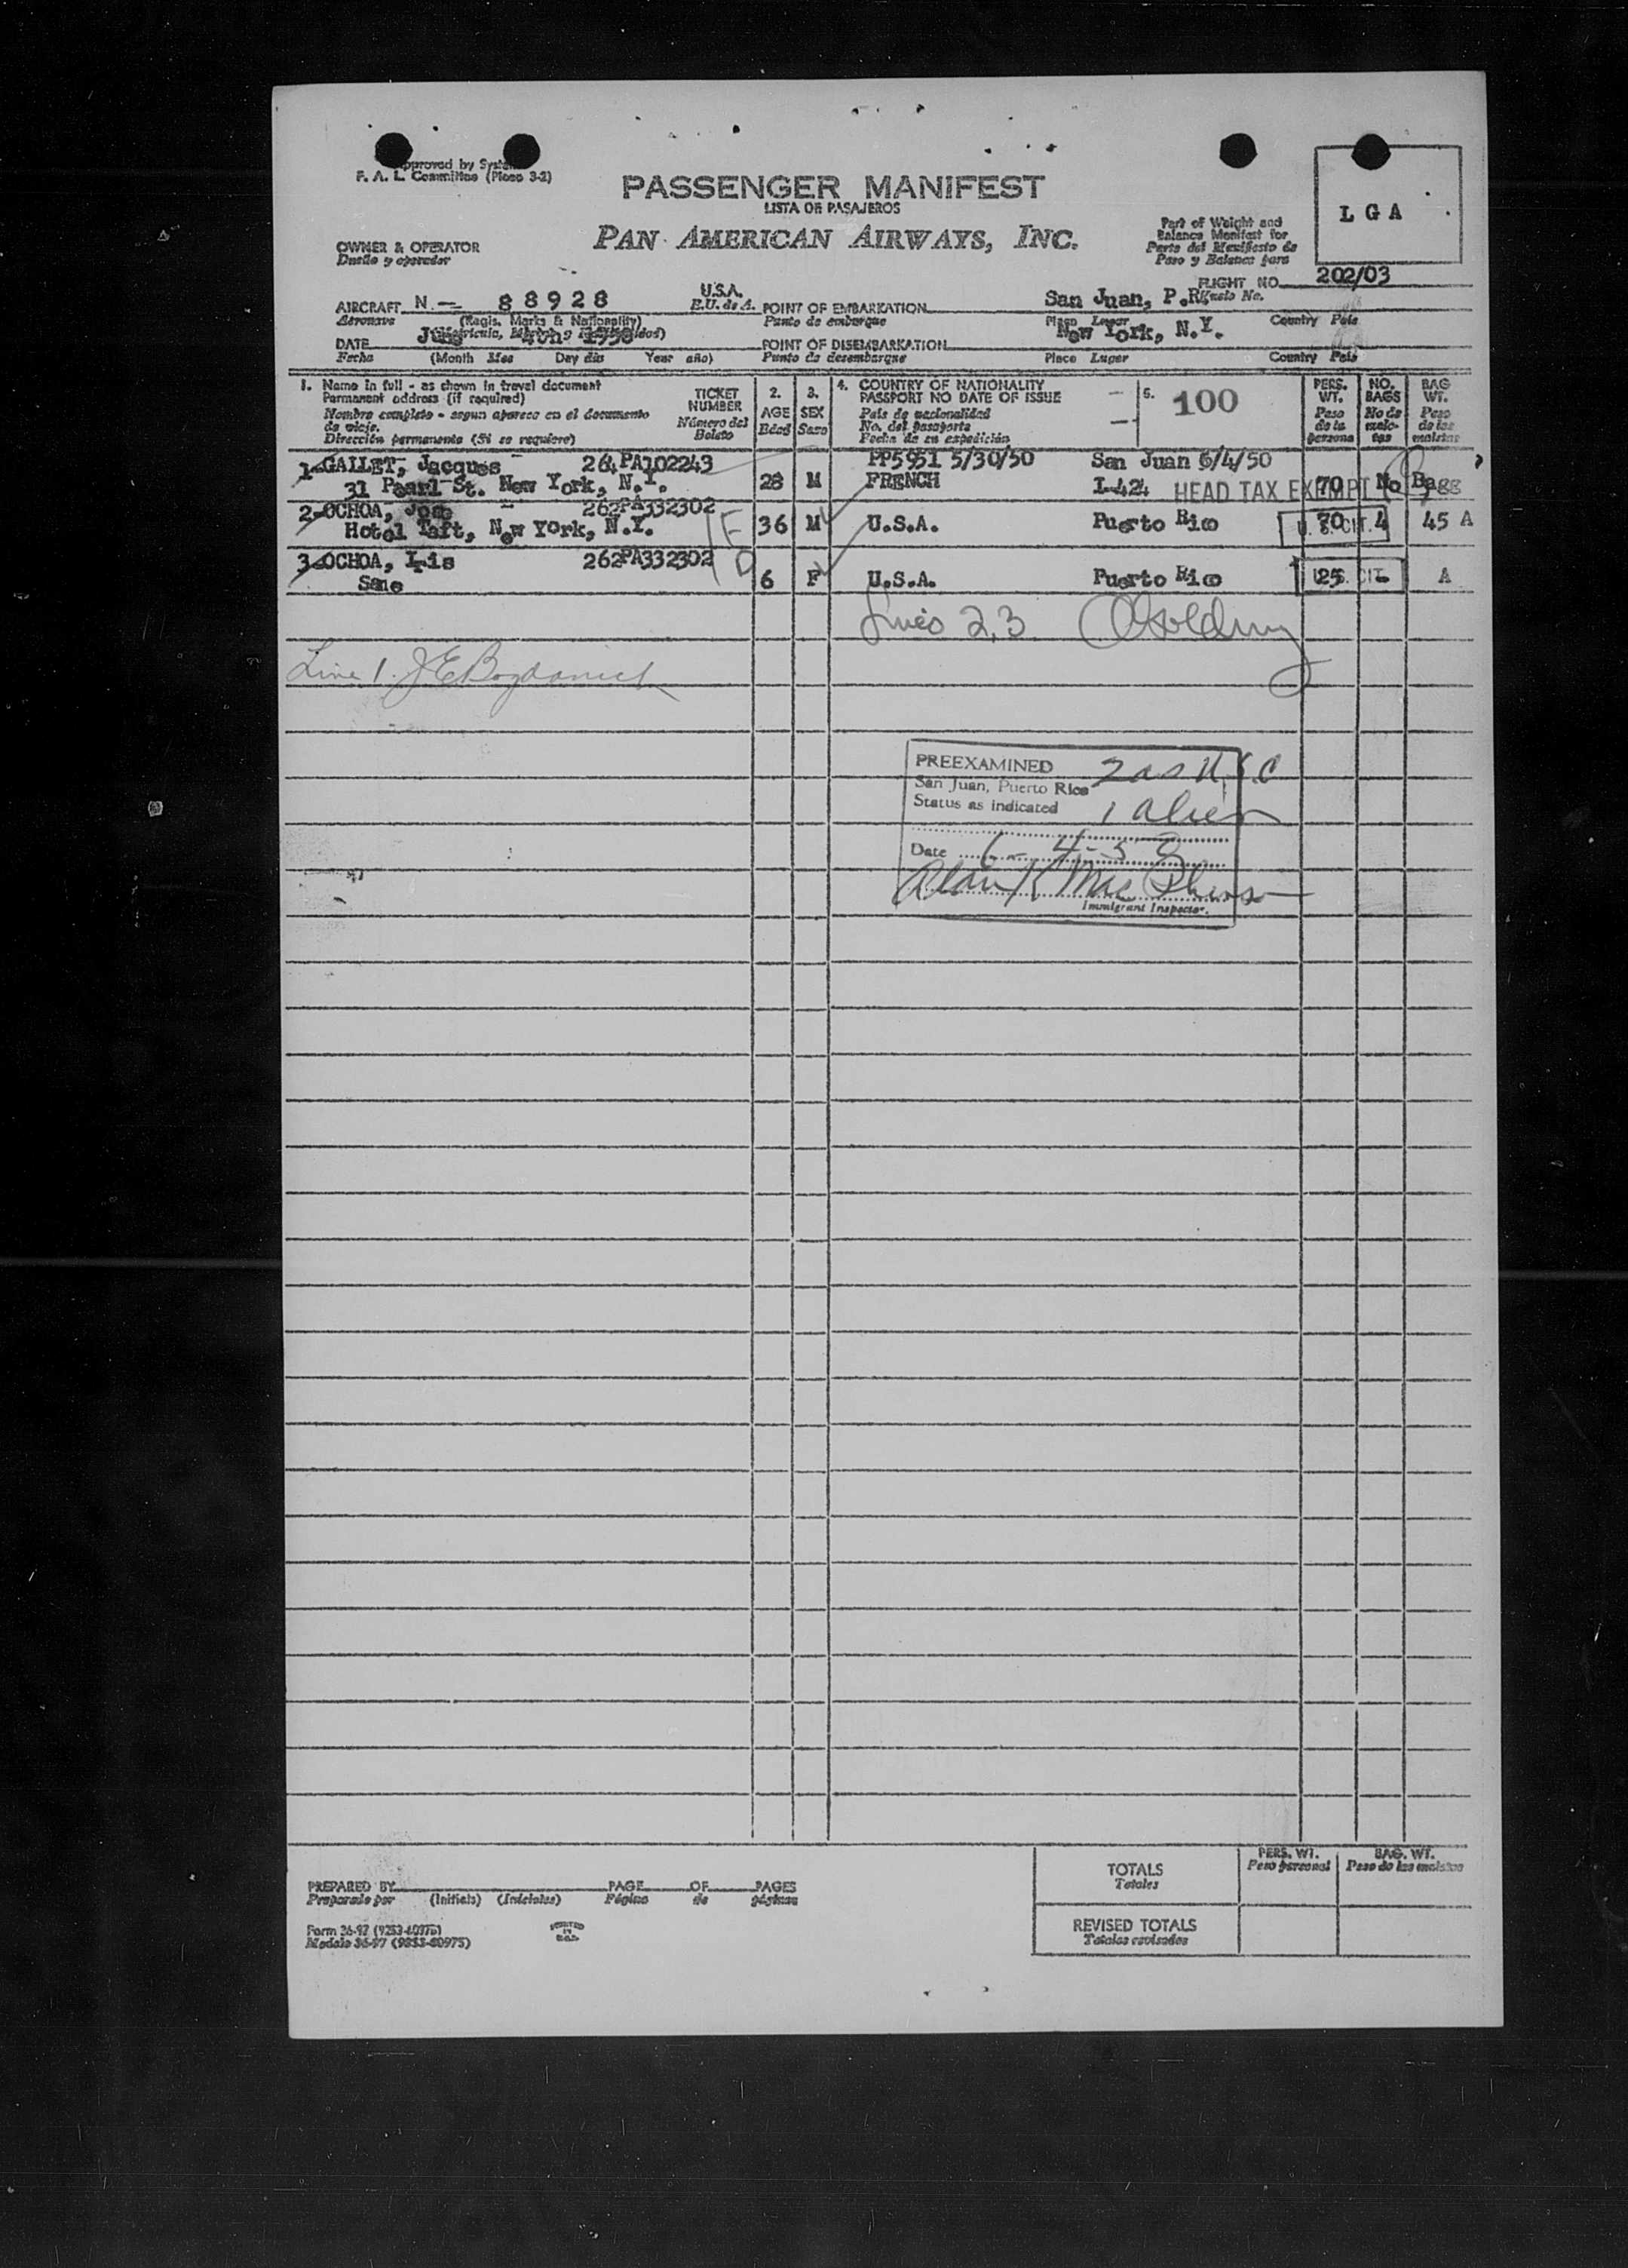 Approved by System
F. A. L. Committee (Picao 3-2)
PASSENGER MANIFEST
LISTA DE PASAJEROS
PAN AMERICAN AIRWAYS, INC.
Part of Weight and
Balance Manifest for
Parte del Manifiesto de
Peso y Balance para
L G A
OWNER & OPERATOR
Dueño y operador
FLIGHT NO. 202/03
Vuelo No.
AIRCRAFT N — 88928 U.S.A.
Aeronave (Regis. Marks & Nationality) E.U. de A.
POINT OF EMBARKATION San Juan, P.R.
Punto de embarque Place Lugar Country País
DATE June 4th, 1950
Fecha (Month Mes Day día Year año)
POINT OF DISEMBARKATION New York, N.Y.
Punto de desembarque Place Lugar Country País
1. Name in full - as shown in travel document
Permanent address (if required)
Nombre completo - segun aparece en el documento
de viaje.
Dirección permanente (Si se requiere)
TICKET
NUMBER
Número del
Boleto
2.
AGE
Edad
3.
SEX
Sexo
4. COUNTRY OF NATIONALITY
PASSPORT NO DATE OF ISSUE
País de nacionalidad
No. del pasaporte
Fecha de su expedición
5. 100
PERS.
WT.
Peso
de la
persona
NO.
BAGS
No de
male-
tas
BAG
WT.
Peso
de las
maletas
1-GALLET, Jacques 264PA102243 28 M PP5951 5/30/50 San Juan 6/4/50
31 Pearl St. New York, N.Y. FRENCH I-424 HEAD TAX EXEMPT 70 No Bagg
2-OCHOA, Jose 262PA332302 36 M U.S.A. Puerto Rico U. S. CIT. 70 4 45 A
Hotel Taft, New York, N.Y.
3-OCHOA, Iris 262PA332302 6 F U.S.A. Puerto Rico U. S. CIT. 25 - A
Same
Lines 2,3
Line 1. J E Bogdanich
PREEXAMINED 2 as U.S.C
San Juan, Puerto Rico
Status as indicated 1 alien
Date 6-4-50
Immigrant Inspector.
PREPARED BY
Preparado por (Initials) (Iniciales)
PAGE OF PAGES
Página de páginas
TOTALS
Totales
PERS. WT.
Peso personal
BAG. WT.
Peso de las maletas
REVISED TOTALS
Totales revisados
Form 36-97 (9253-80975)
Modelo 36-97 (9253-80975)
PRINTED
IN
U.S.A.